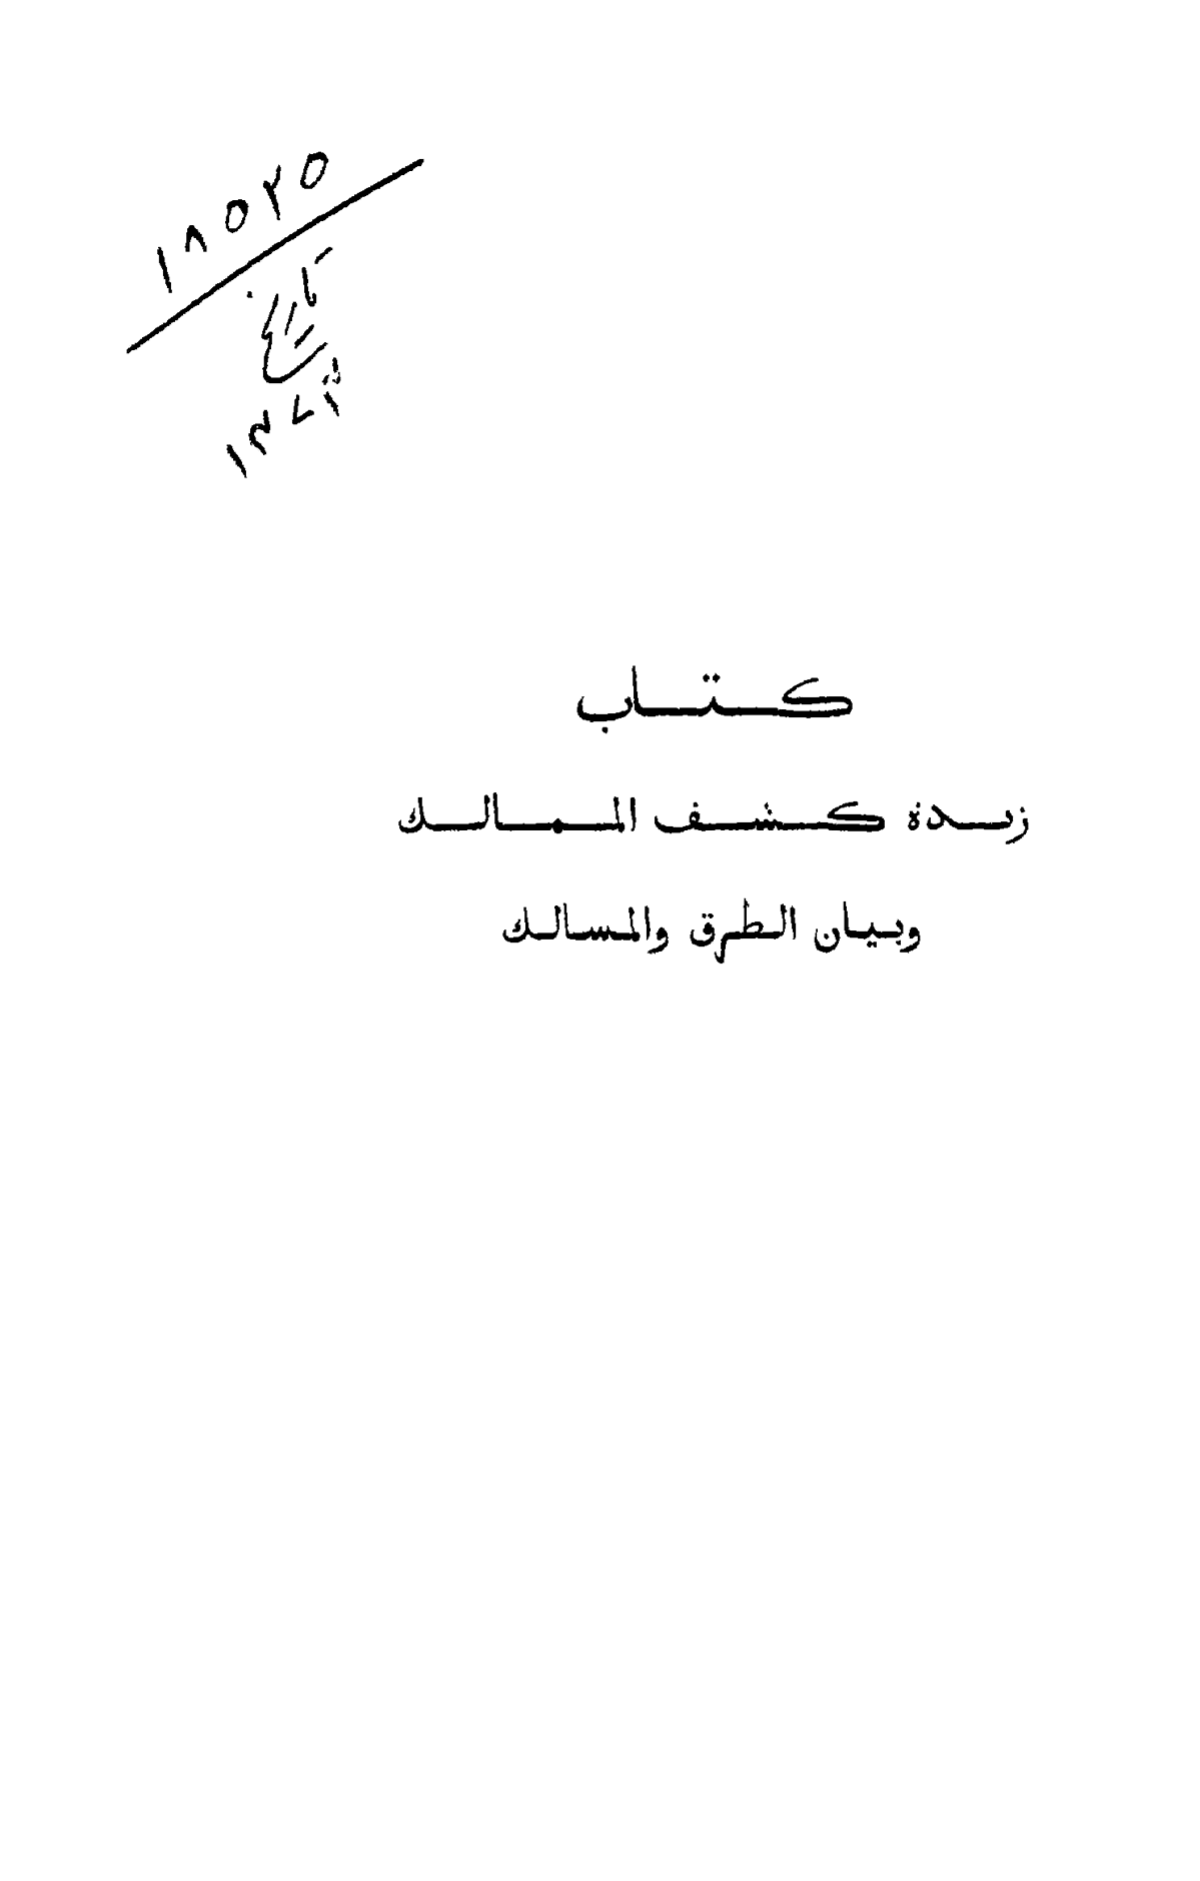 ١٨٥٢٥
تاريخ
كتاب
زبدة كشف الممالك
وبيان الطرق والمسالك